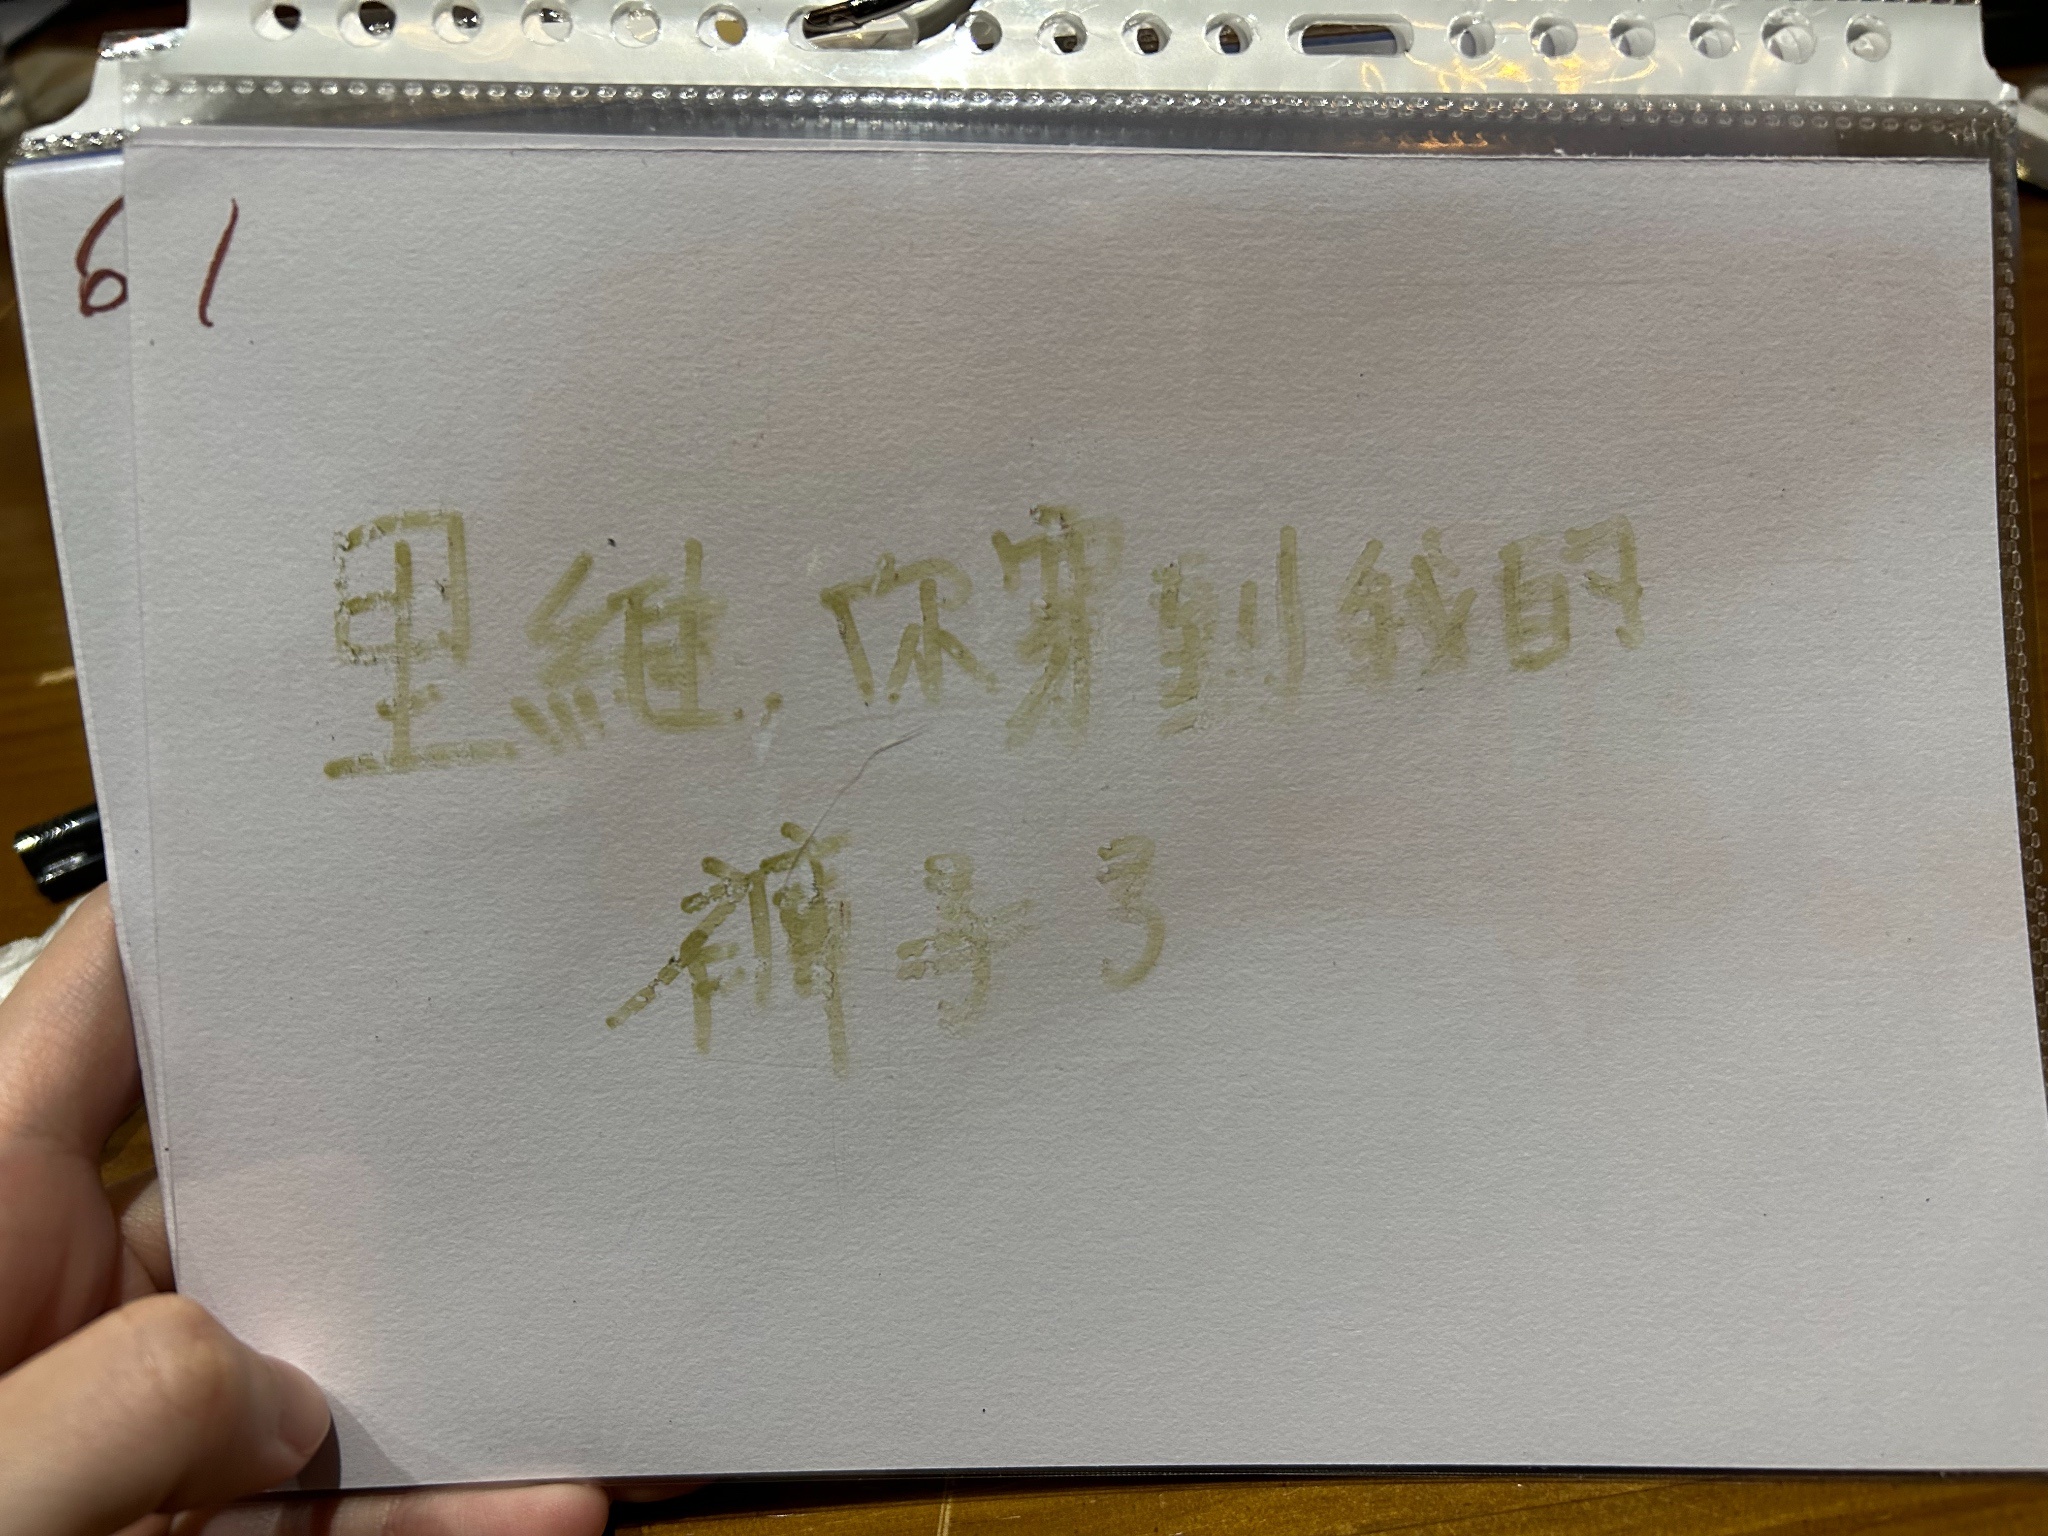 6 1
里維，你穿到我的
褲子了